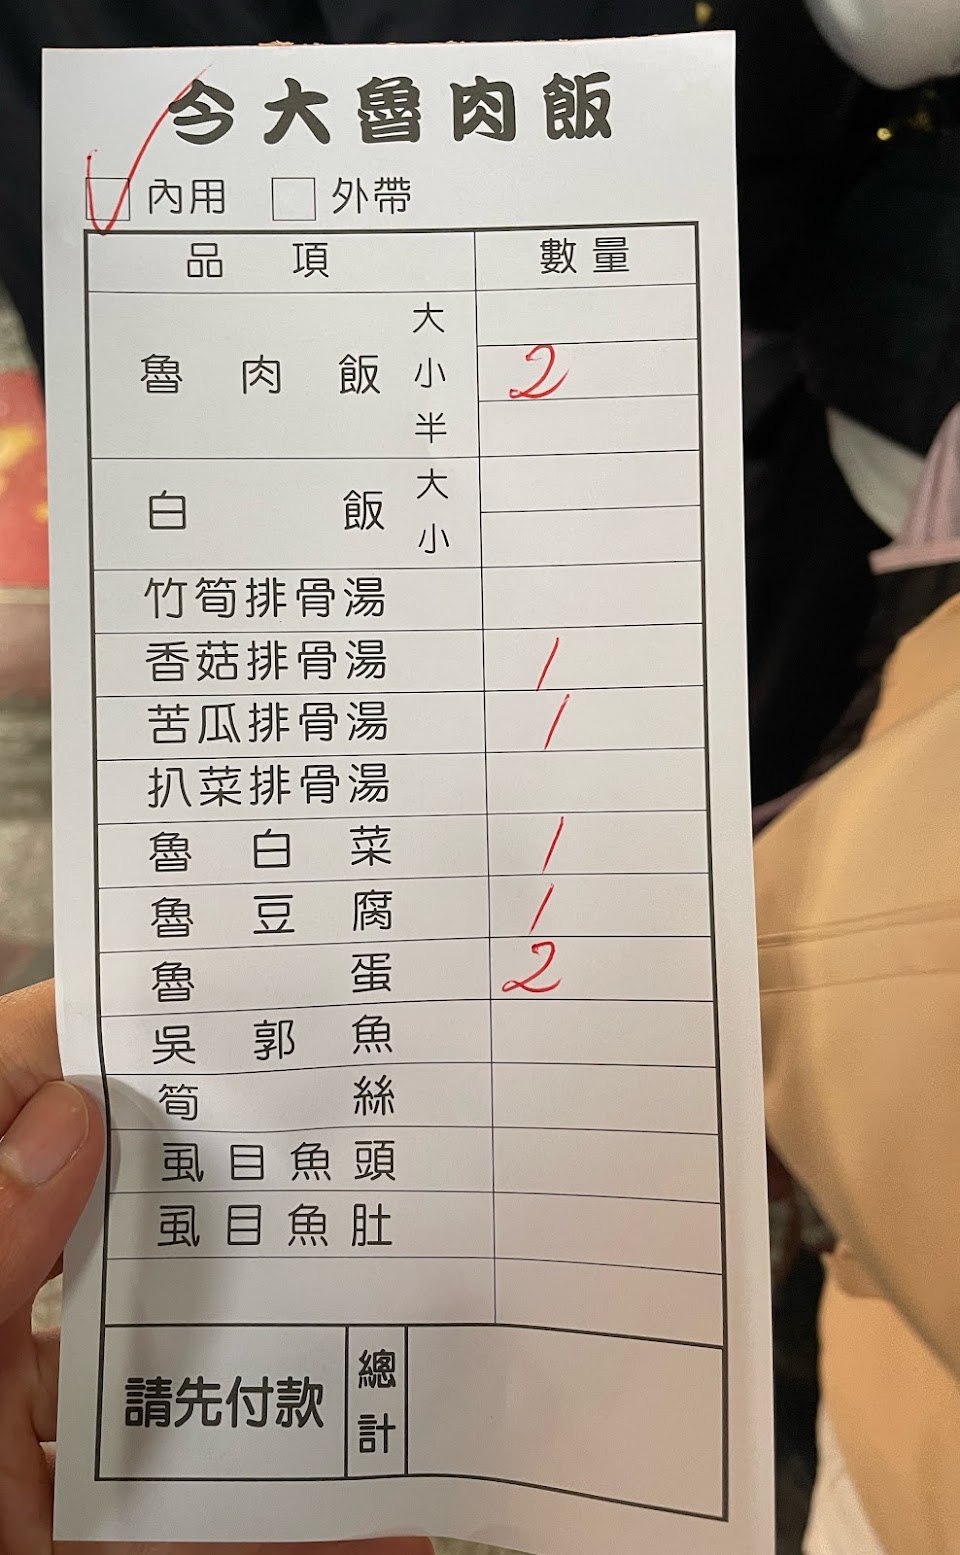 今大魯肉飯
內用 外帶
品項 數量
大
魯肉飯 小 2
半
大
白飯
小
竹筍排骨湯
香菇排骨湯 1
苦瓜排骨湯 1
扒菜排骨湯
魯白菜 1
魯豆腐 1
魯蛋 2
吳郭魚
筍絲
虱目魚頭
虱目魚肚
請先付款 總計